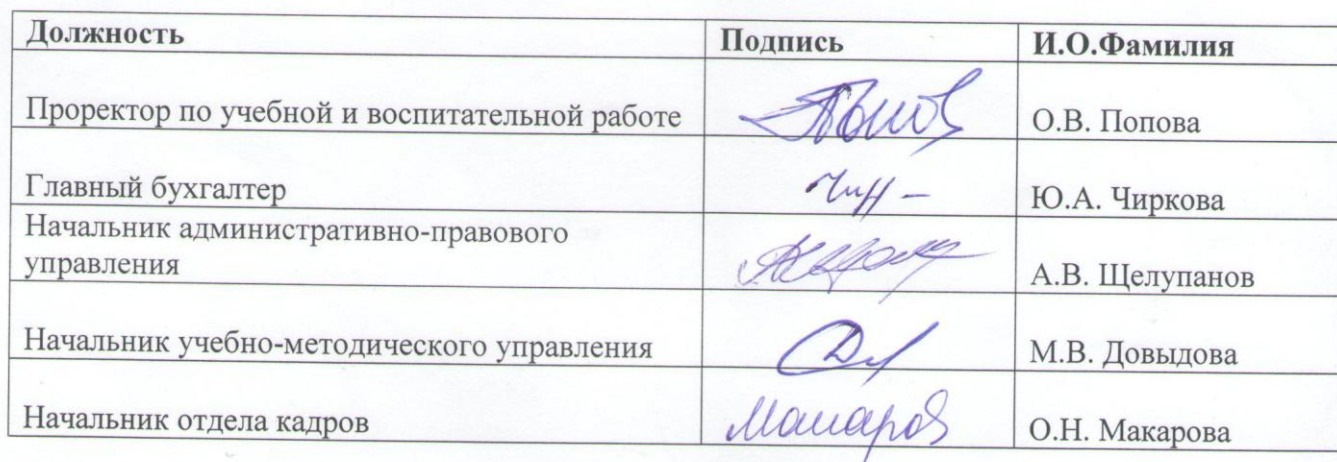 Должность Подпись И.О.Фамилия
Проректор по учебной и воспитательной работе О.В. Попова
Главный бухгалтер Ю.А. Чиркова
Начальник административно-правового
управления А.В. Щелупанов
Начальник учебно-методического управления М.В. Довыдова
Начальник отдела кадров О.Н. Макарова